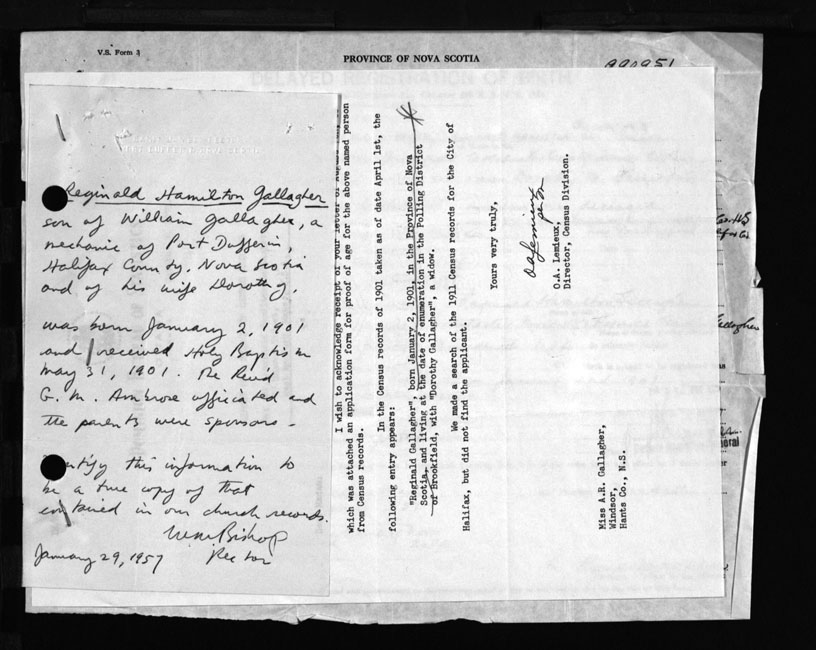 V.S. Form
PROVINCE OF NOVA SCOTIA
990951
DELAYED REGISTRATION OF BIRTH
Reginald Hamilton Gallagher
son of William Gallagher, a
mechanic of Port Dufferin,
Halifax County, Nova Scotia
and of his wife Dorothy,
was born January 2, 1901
and received Holy Baptism
May 31, 1901. The Rev'd
G. M. Ambrose officiated and
the parents were sponsors -
certify this information to
be a true copy of that
contained in our church records.
Wm Bishop
January 29, 1957 Rector
I wish to acknowledge receipt of your letter of
which was attached an application form for proof of age for the above named person
from Census records.
In the Census records of 1901 taken as of date April 1st, the
following entry appears:
"Reginald Gallagher", born January 2, 1901, in the Province of Nova
Scotia, and living at the date of enumeration in the Polling District
of Brookfield, with "Dorothy Gallagher", a widow.
We made a search of the 1911 Census records for the City of
Halifax, but did not find the applicant.
Yours very truly,
O.A. Lemieux,
Director, Census Division.
Miss A.R. Gallagher,
Windsor,
Hants Co., N.S.
Gallagher